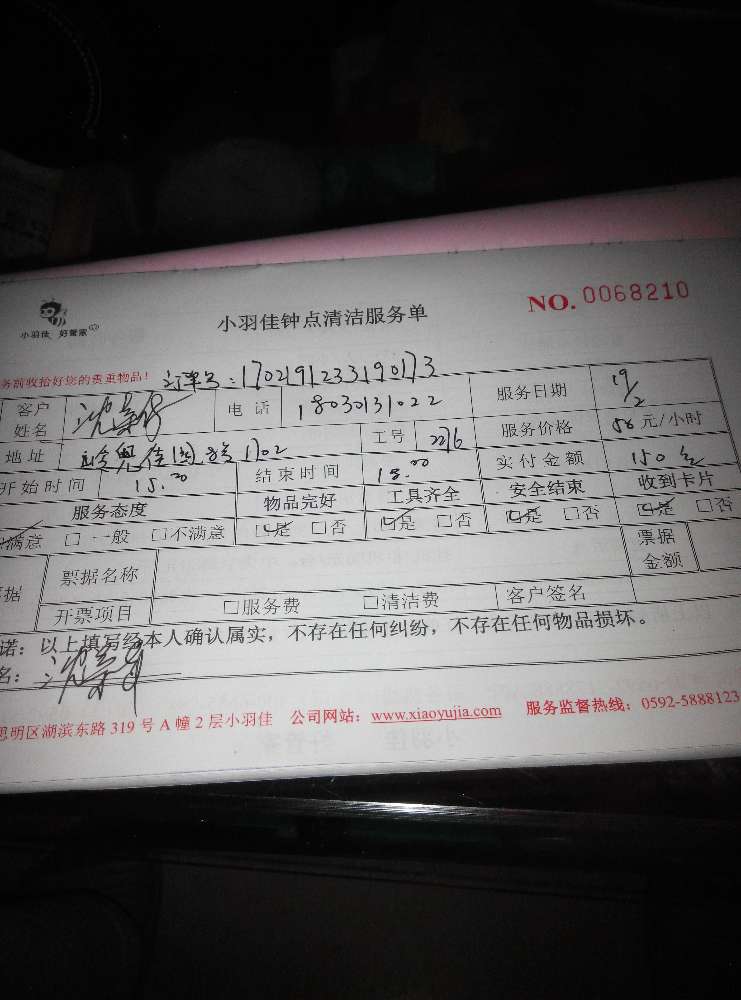 小羽佳 好管家
小羽佳钟点清洁服务单
NO. 0068210
务前收拾好您的贵重物品! 订单号:1702191233190173
客户姓名 电话 18030131022 服务日期 19/2
地址 1702 工号 2276 服务价格 50元/小时
开始时间 15.00 结束时间 18.00 实付金额 150元
服务态度 物品完好 工具齐全 安全结束 收到卡片
满意 □一般 □不满意 □是 □否 □是 □否 □是 □否 □是 □否
据 票据名称 票据金额
开票项目 □服务费 □清洁费 客户签名
诺:以上填写经本人确认属实,不存在任何纠纷,不存在任何物品损坏。
名:
思明区湖滨东路319号A幢2层小羽佳 公司网站:www.xiaoyujia.com 服务监督热线:0592-5888123